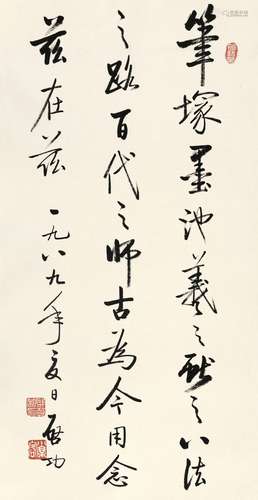 筆塚墨池羲之獻之八法
之路百代之師古為今用念
茲在茲 一九八九年夏日 啓功